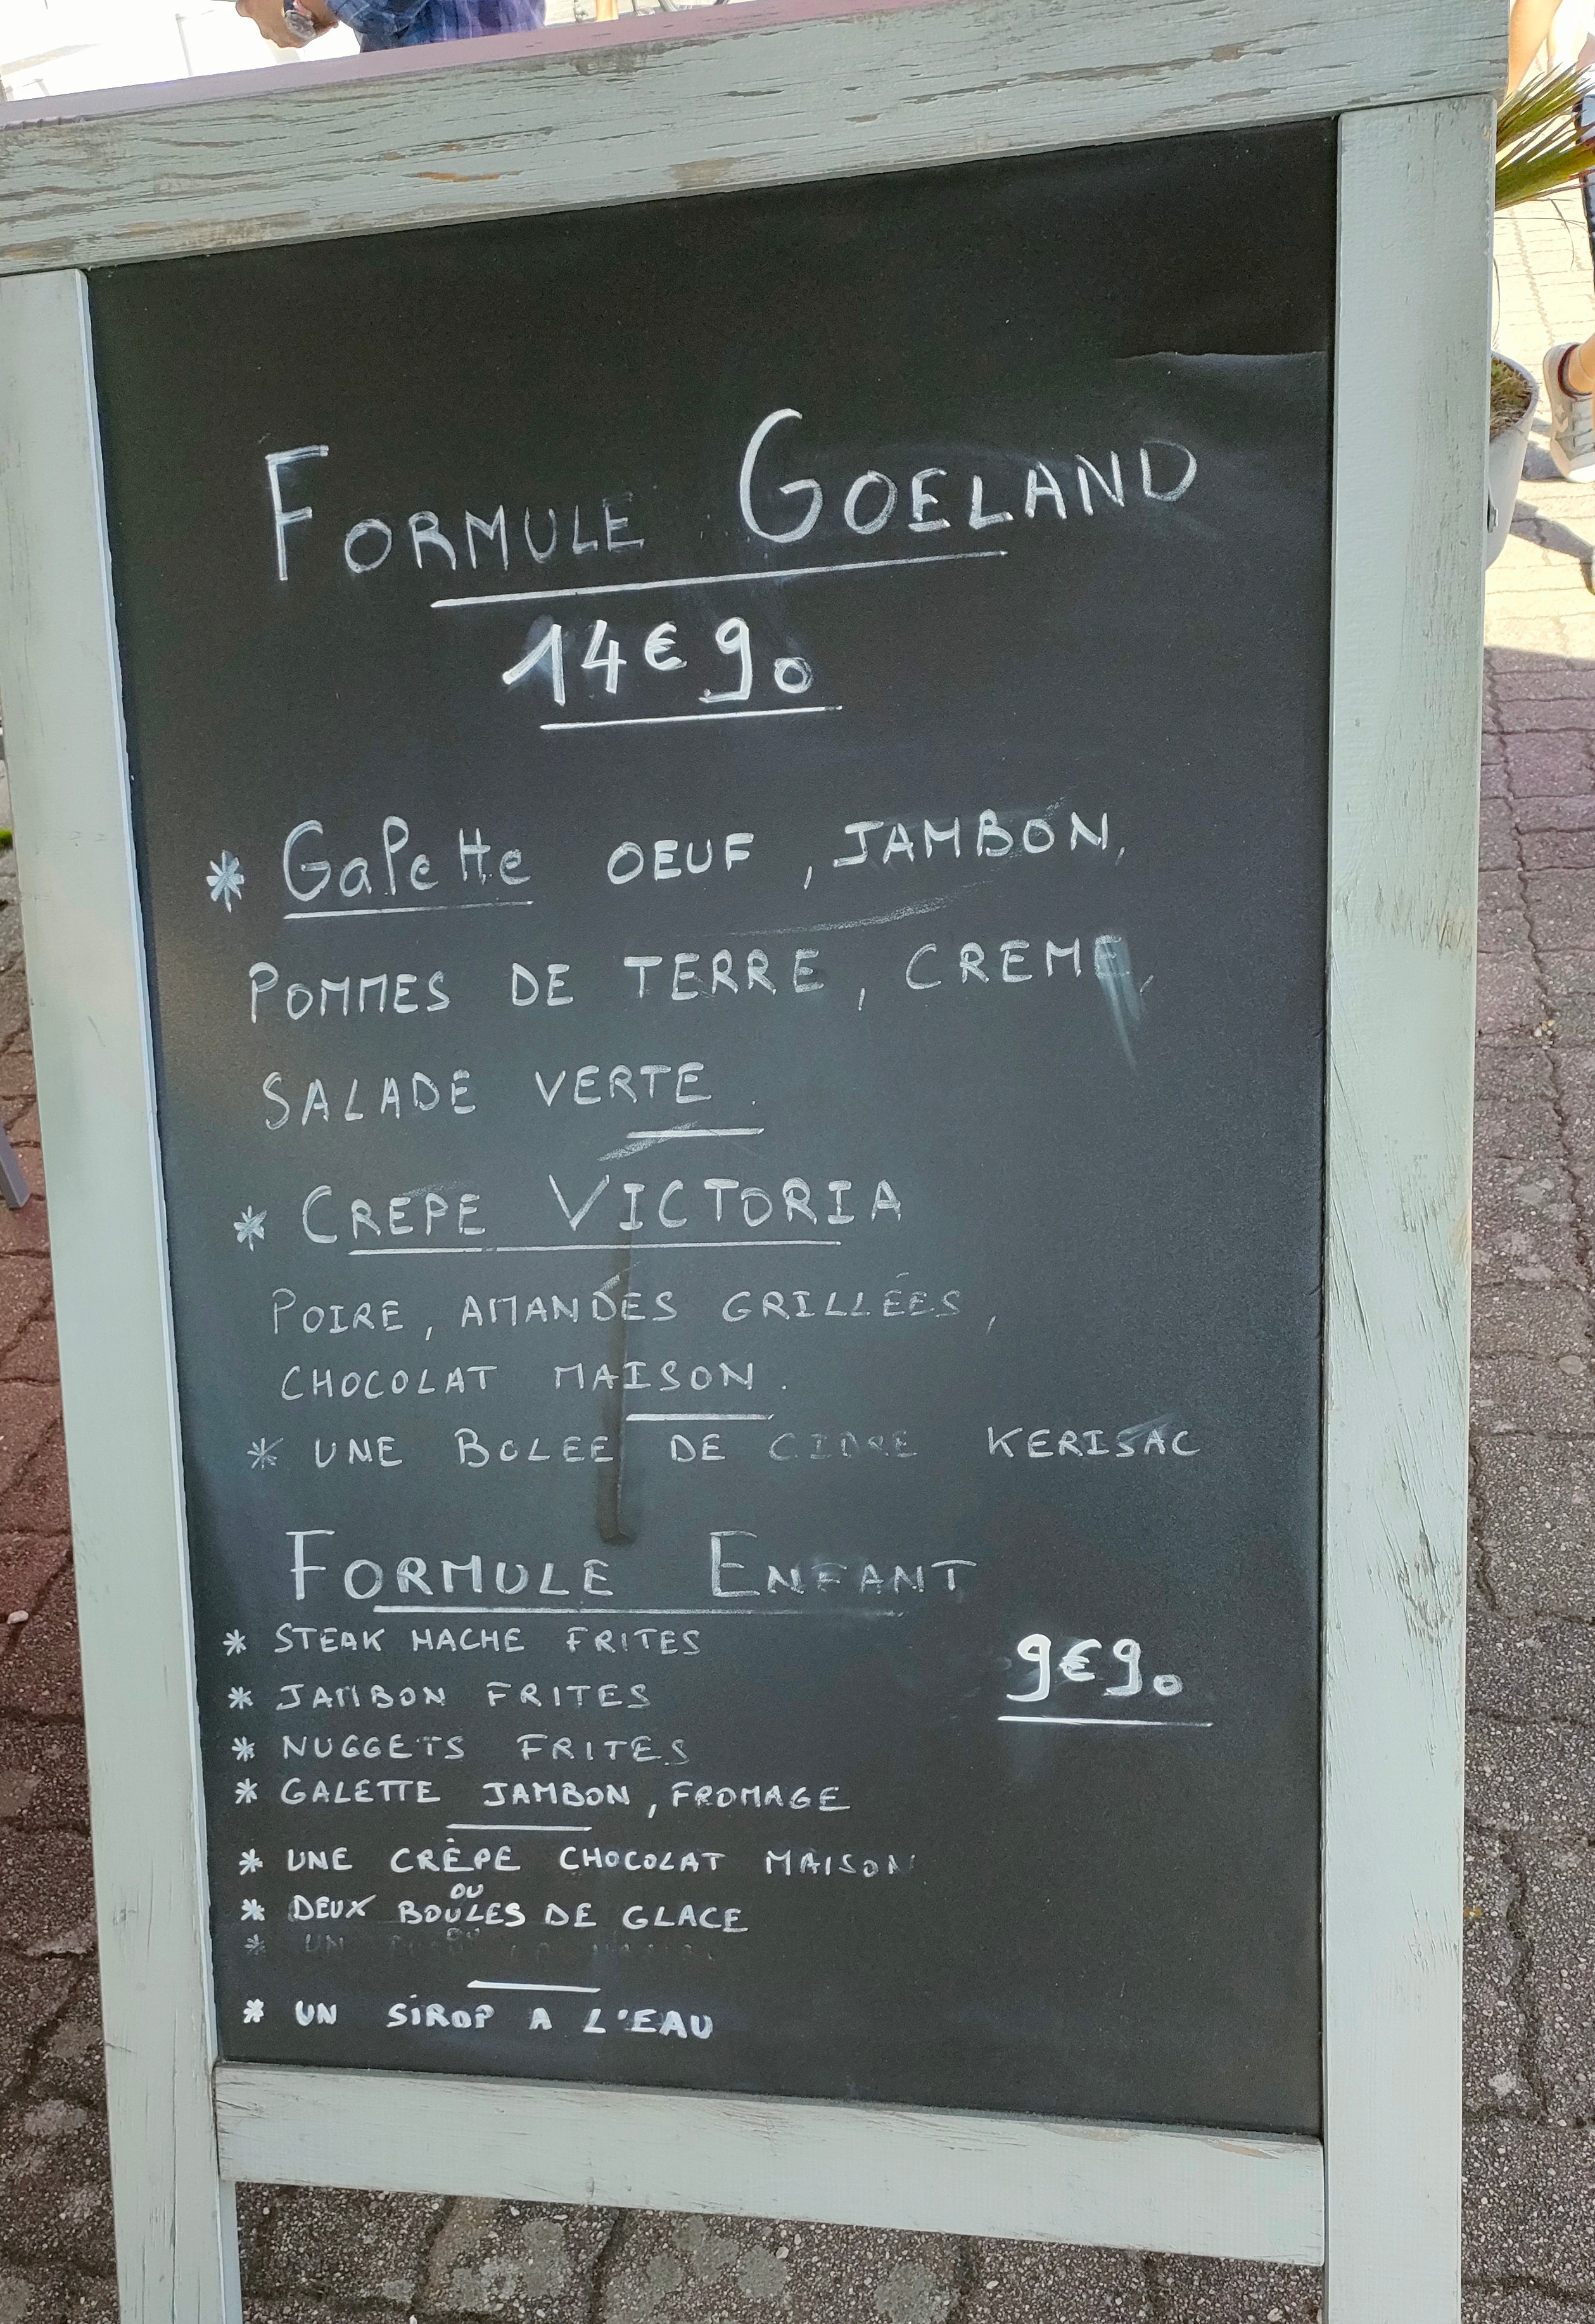 FORMULE GOELAND
14€90
* Galette OEUF, JAMBON,
POMMES DE TERRE, CREME,
SALADE VERTE.
* CREPE VICTORIA
POIRE, AMANDES GRILLÉES,
CHOCOLAT MAISON.
* UNE BOLEE DE CIDRE KERISAC
FORMULE ENFANT
* STEAK HACHE FRITES
9€90
* JAMBON FRITES
* NUGGETS FRITES
* GALETTE JAMBON, FROMAGE
* UNE CRÊPE CHOCOLAT MAISON
OU
* DEUX BOULES DE GLACE
* UN
* UN SIROP A L'EAU